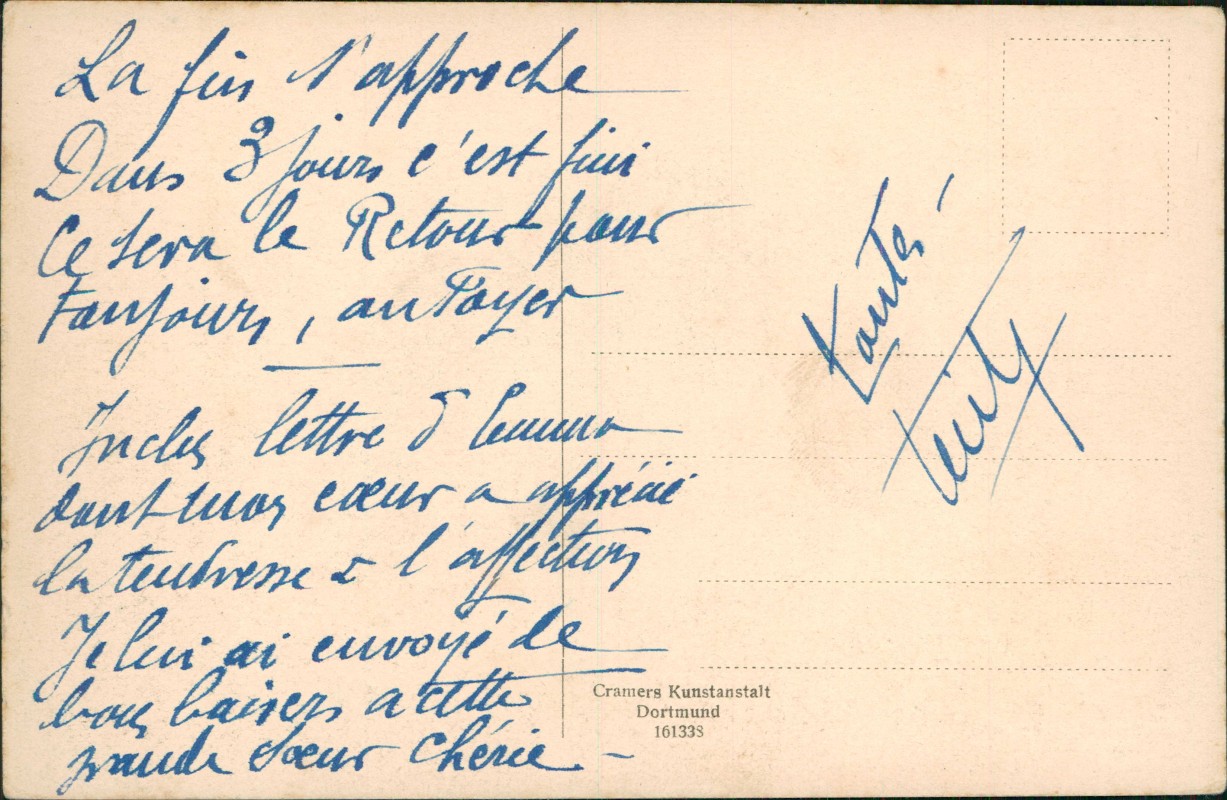 La fin s'approche
Dans 3 jours c'est fini
Ce sera le Retour pour
toujours, au Foyer
Inclus lettre d'Emma
dont mon cœur a apprécié
la tendresse & l'affection
Je lui ai envoyé de
bons baisers a cette
grande sœur chérie -
Cramers Kunstanstalt
Dortmund
161338